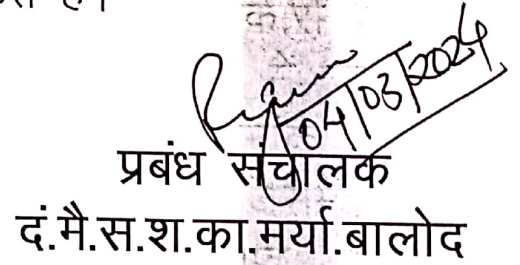 है।
04/03/2024
प्रबंध संचालक
दं.मै.स.श.का.मर्या.बालोद